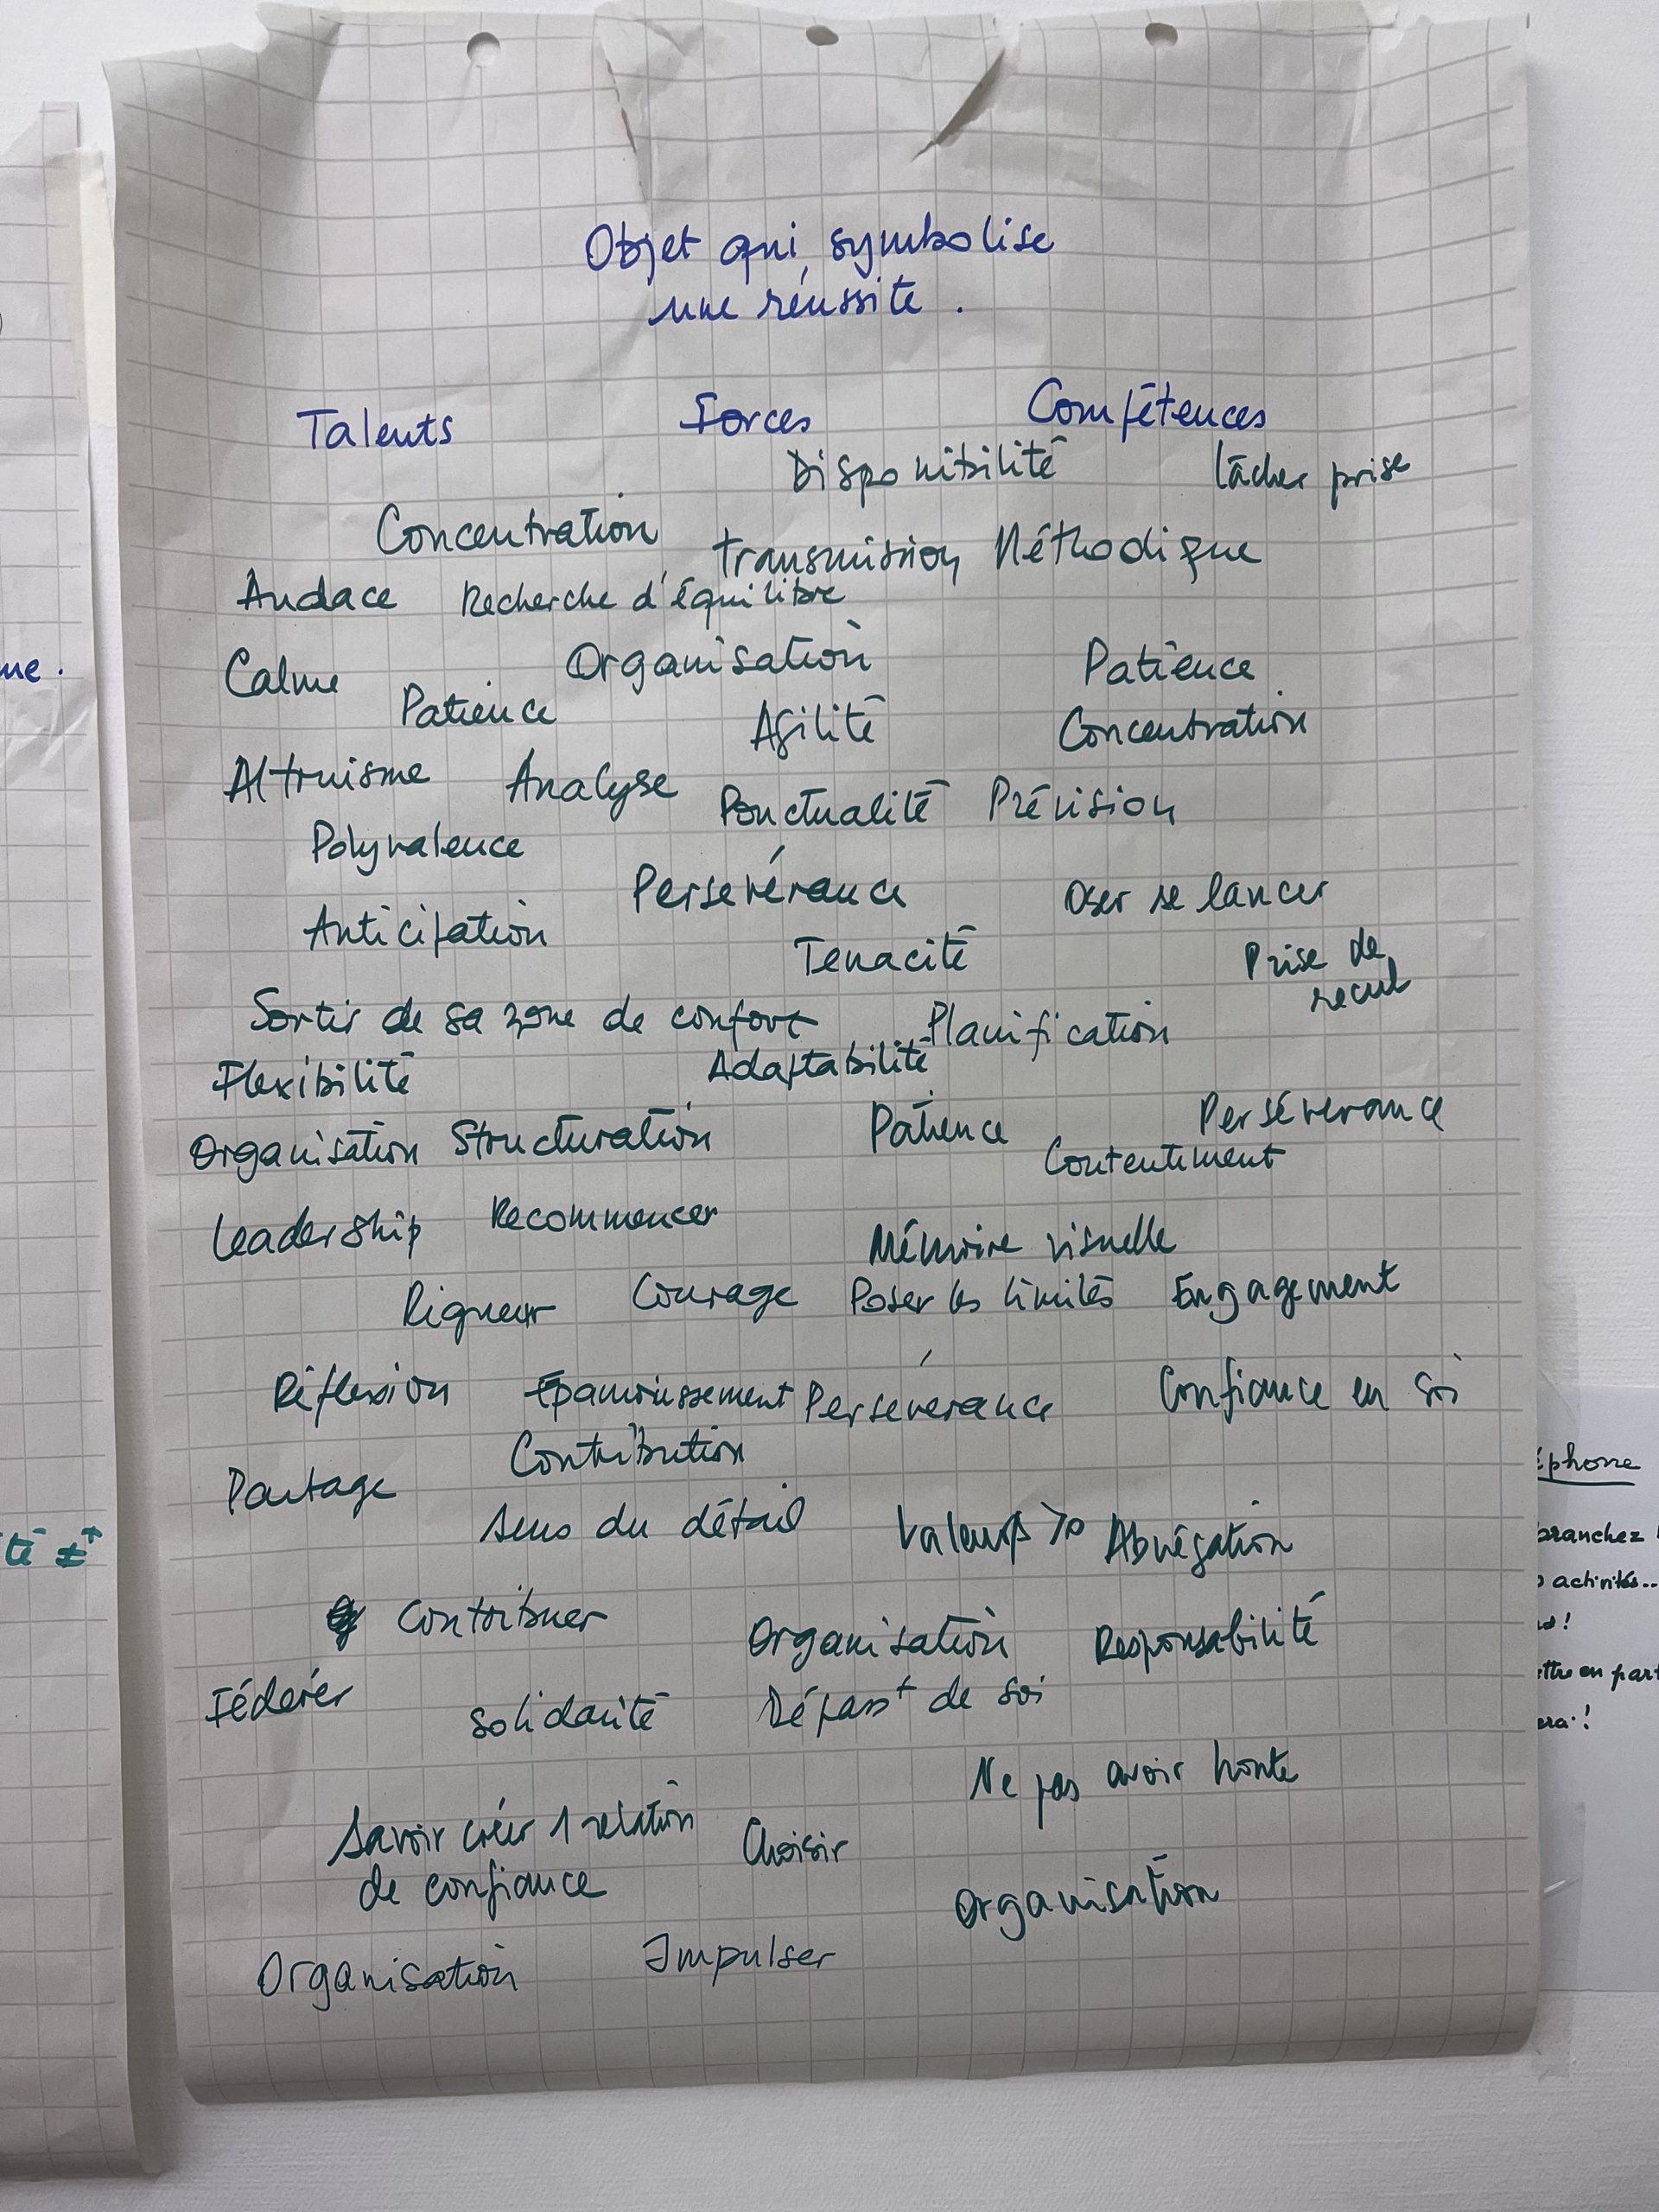 Objet qui symbolise
une réussite.
Talents Forces Compétences
Disponibilité lâcher prise
Concentration transmission Méthodique
Audace Recherche d'équilibre
Calme Organisation Patience
Patience Agilité Concentration
Altruisme Analyse Ponctualité Prévision
Polyvalence
Persévérance Oser se lancer
Anticipation Tenacité Prise de
recul
Sortir de sa zone de confort Planification
Flexibilité Adaptabilité
Organisation Structuration Patience Persévérance
Contentement
Leadership Recommencer Mémoire visuelle
Rigueur Courage Poser les limites Engagement
Réflexion Epanouissement Persévérance Confiance en soi
Contribution
Partage
Sens du détail Valeurs Abnégation
Contribuer Organisation Responsabilité
Fédérer Solidarité Dépasst de soi
Ne pas avoir honte
Savoir créer 1 relation
de confiance Choisir
Organisation
Organisation Impulser
me.
té
éphone
branchez
activités...
ttre en part
era!